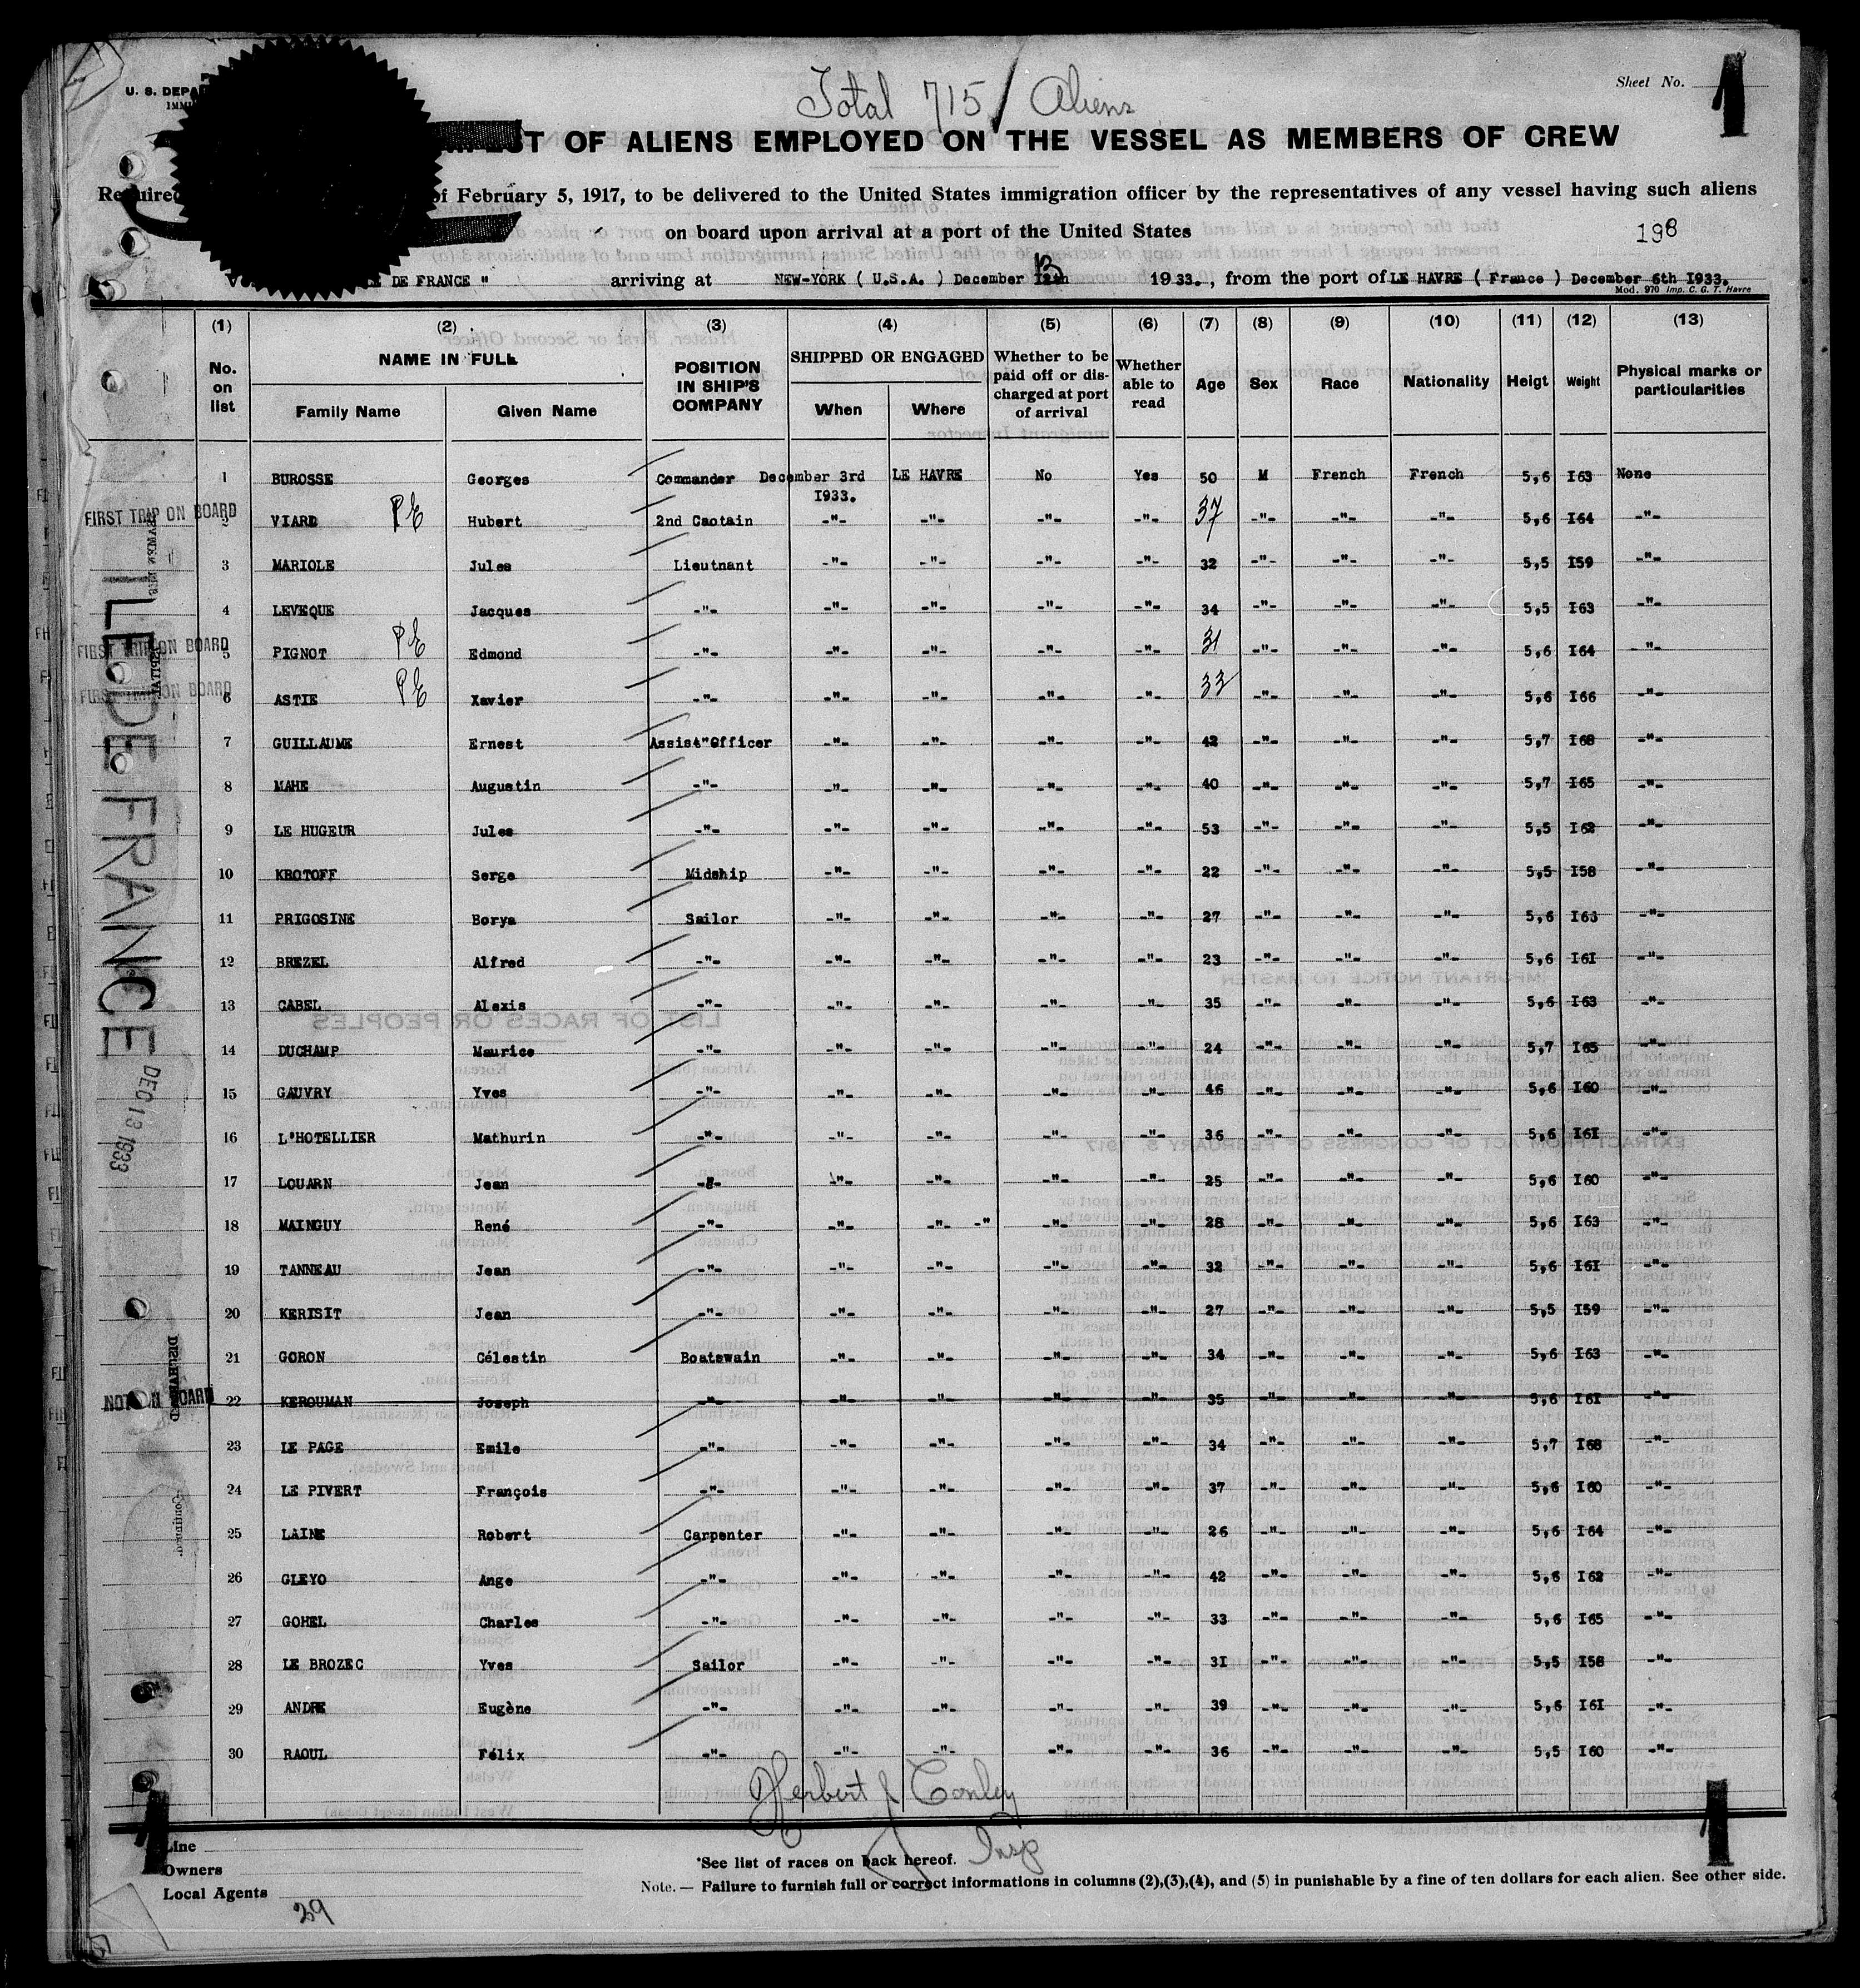 Total 715 Aliens
Sheet No. 1
U. S. DEPA
IMMI
ST OF ALIENS EMPLOYED ON THE VESSEL AS MEMBERS OF CREW
Required of February 5, 1917, to be delivered to the United States immigration officer by the representatives of any vessel having such aliens
on board upon arrival at a port of the United States
198
LE DE FRANCE " arriving at NEW-YORK ( U.S.A. ) December 13 12th 1933., from the port of LE HAVRE ( France ) December 6th I933.
Mod. 970 Imp. C. G. T. Havre
(1) (2) (3) (4) (5) (6) (7) (8) (9) (10) (11) (12) (13)
No. on list NAME IN FULL POSITION IN SHIP'S COMPANY SHIPPED OR ENGAGED Whether to be paid off or discharged at port of arrival Whether able to read Age Sex Race Nationality Heigt Weight Physical marks or particularities
Family Name Given Name When Where
1 BUROSSE Georges Commander December 3rd I933. LE HAVRE No Yes 50 M French French 5,6 I63 None
FIRST TRIP ON BOARD 2 VIARD PE Hubert 2nd Caotain -"- -"- -"- -"- 37 -"- -"- -"- 5,6 I64 -"-
3 MARIOLE Jules Lieutnant -"- -"- -"- -"- 32 -"- -"- -"- 5,5 I59 -"-
4 LEVEQUE Jacques -"- -"- -"- -"- -"- 34 -"- -"- -"- 5,5 I63 -"-
FIRST TRIP ON BOARD 5 PIGNOT PE Edmond -"- -"- -"- -"- -"- 31 -"- -"- -"- 5,6 I64 -"-
FIRST TRIP ON BOARD 6 ASTIE PE Xavier -"- -"- -"- -"- -"- 33 -"- -"- -"- 5,6 I66 -"-
7 GUILLAUME Ernest Assist"Officer -"- -"- -"- -"- 42 -"- -"- -"- 5,7 I68 -"-
8 MAHE Augustin -"- -"- -"- -"- -"- 40 -"- -"- -"- 5,7 I65 -"-
9 LE HUGEUR Jules -"- -"- -"- -"- -"- 53 -"- -"- -"- 5,5 I62 -"-
10 KROTOFF Serge Midship -"- -"- -"- -"- 22 -"- -"- -"- 5,5 I58 -"-
11 PRIGOSINE Borya Sailor -"- -"- -"- -"- 27 -"- -"- -"- 5,6 I63 -"-
12 BREZEL Alfred -"- -"- -"- -"- -"- 23 -"- -"- -"- 5,6 I6I -"-
13 CABEL Alexis -"- -"- -"- -"- -"- 35 -"- -"- -"- 5,6 I63 -"-
14 DUCHAMP Maurice -"- -"- -"- -"- -"- 24 -"- -"- -"- 5,7 I65 -"-
15 GAUVRY Yves -"- -"- -"- -"- -"- 46 -"- -"- -"- 5,6 I60 -"-
16 L'HOTELLIER Mathurin -"- -"- -"- -"- -"- 36 -"- -"- -"- 5,6 I6I -"-
17 LOUARN Jean -"- -"- -"- -"- -"- 25 -"- -"- -"- 5,6 I60 -"-
18 MAINGUY René -"- -"- -"- -" -"- -"- 28 -"- -"- -"- 5,6 I63 -"-
19 TANNEAU Jean -"- -"- -"- -"- -"- 32 -"- -"- -"- 5,6 I6I -"-
20 KERISIT Jean -"- -"- -"- -"- -"- 27 -"- -"- -"- 5,5 I59 -"-
21 GORON Célestin Boatswain -"- -"- -"- -"- 34 -"- -"- -"- 5,6 I63 -"-
NOT ON BOARD 22 KEROUMAN Joseph -"- -"- -"- -"- -"- 35 -"- -"- -"- 5,6 I6I -"-
23 LE PAGE Emile -"- -"- -"- -"- -"- 34 -"- -"- -"- 5,7 I68 -"-
24 LE PIVERT François -"- -"- -"- -"- -"- 37 -"- -"- -"- 5,6 I60 -"-
25 LAINE Robert Carpenter -"- -"- -"- -"- 26 -"- -"- -"- 5,6 I64 -"-
26 GLEYO Ange -"- -"- -"- -"- -"- 42 -"- -"- -"- 5,6 I62 -"-
27 GOHEL Charles -"- -"- -"- -"- -"- 33 -"- -"- -"- 5,6 I65 -"-
28 LE BROZEC Yves Sailor -"- -"- -"- -"- 3I -"- -"- -"- 5,5 I58 -"-
29 ANDRE Eugène -"- -"- -"- -"- -"- 39 -"- -"- -"- 5,6 I6I -"-
30 RAOUL Félix -"- -"- -"- -"- -"- 36 -"- -"- -"- 5,5 I60 -"-
ILE DE FRANCE
DEC 13 1933
Herbert J Conley
Insp
Line
Owners
Local Agents
*See list of races on back hereof.
Note. — Failure to furnish full or correct informations in columns (2),(3),(4), and (5) in punishable by a fine of ten dollars for each alien. See other side.
29